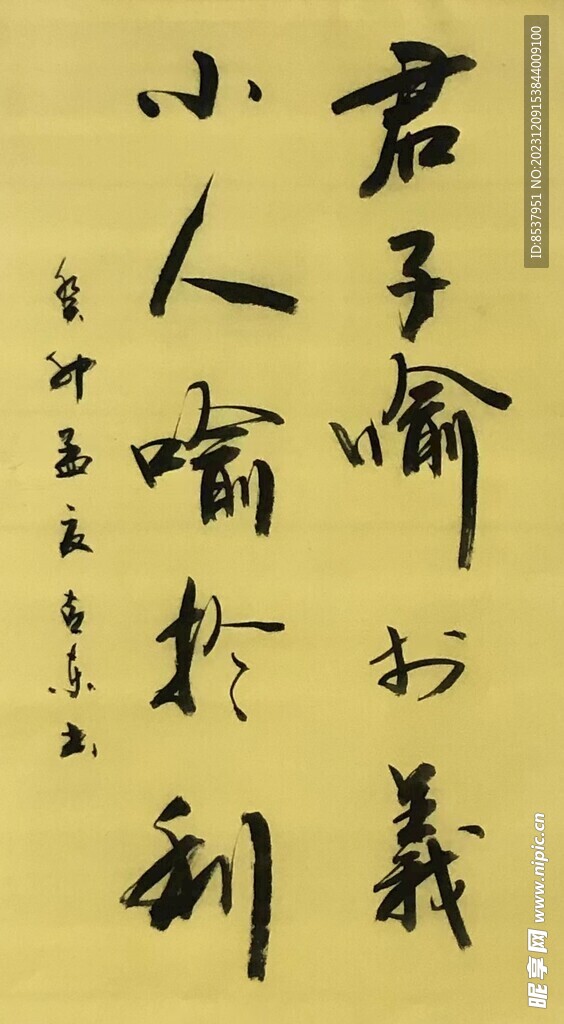 君子喻於義
小人喻於利
癸卯孟夏吉東书
ID:8537951 NO:20231209153844009100
昵享网 www.nipic.cn